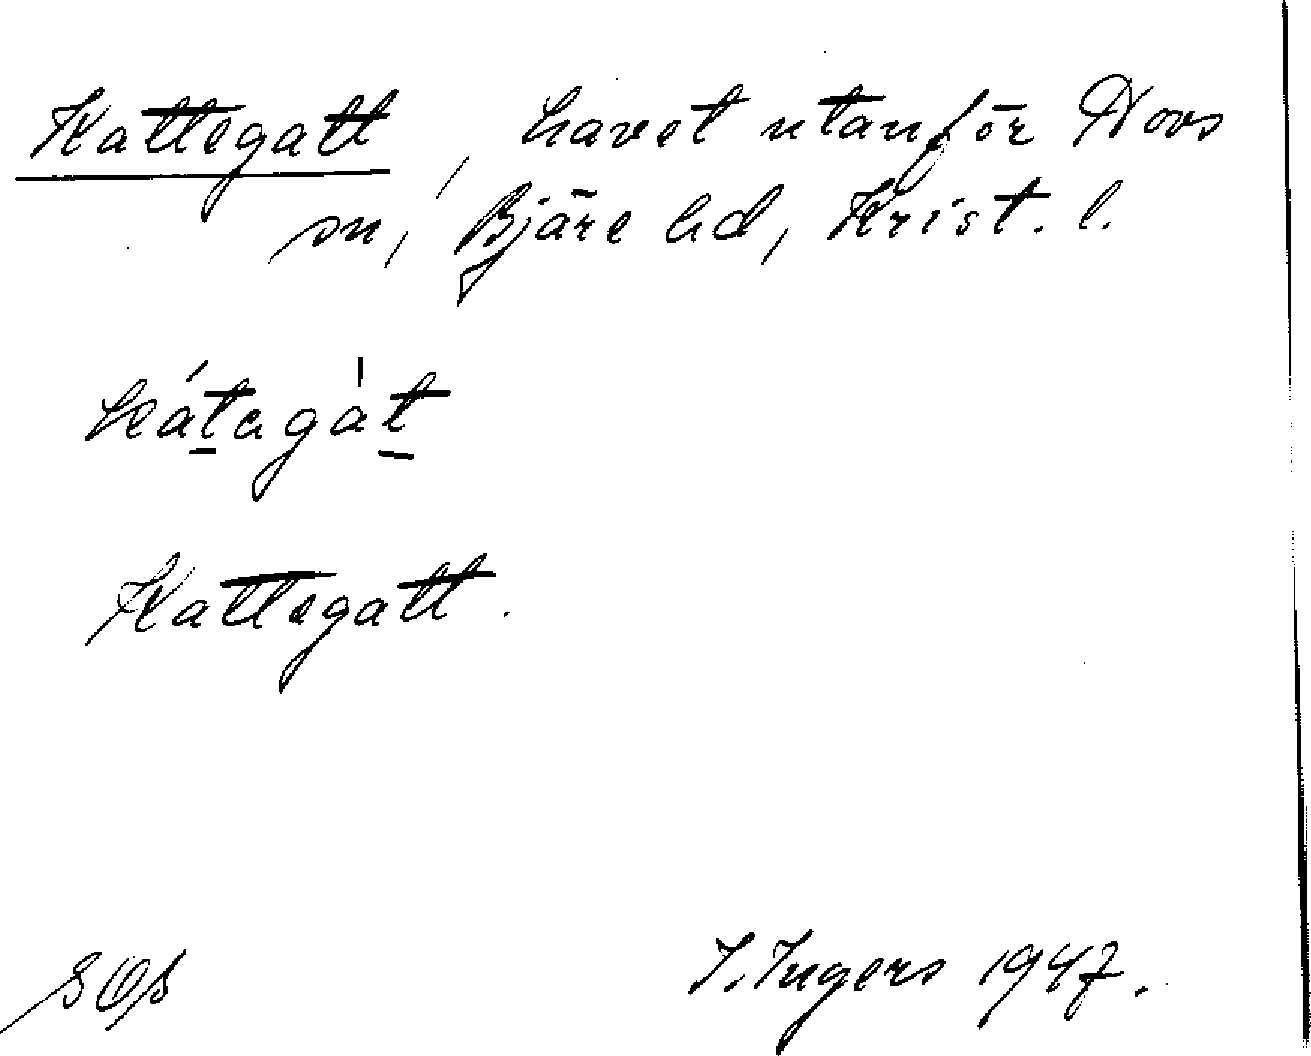 Kattegatt, havet utanför Hovs
sn, Bjäre hd, Krist. l.
kátagàt
Kattegatt.
I. Ingers 1947.